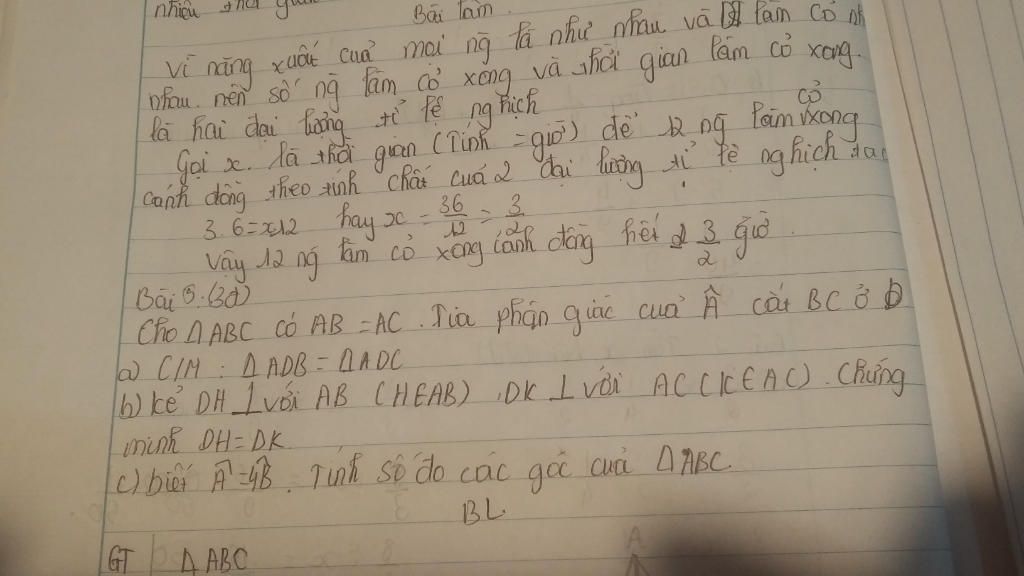 nhiêu thời gian
Bài làm.
Vì năng xuất cuả mọi ng là như nhau và làm cỏ nh
nhau. nên số ng làm cỏ xong và thời gian làm cỏ xong.
là hai đại lượng tỉ lệ nghịch
Gọi x. là thời gian (Tính = giờ) để 12 ng làm cỏ xong
cánh đồng theo tính chất cuả 2 đại lượng tỉ lệ nghịch
3.6=x.12 hay x = 36/12 = 3/2
Vậy 12 ng làm cỏ xong cánh đồng hết 3/2 giờ.
Bài 5. (3đ)
Cho ΔABC có AB = AC. Tia phân giác cuả Â cắt BC ở D
a) C/M : ΔADB = ΔADC
b) kẻ DH ⊥ với AB (H∈AB), DK ⊥ với AC (K∈AC). Chứng
minh DH = DK
c) biết Â=4B̂. Tính số đo các góc cuả ΔABC.
BL
GT ΔABC
A